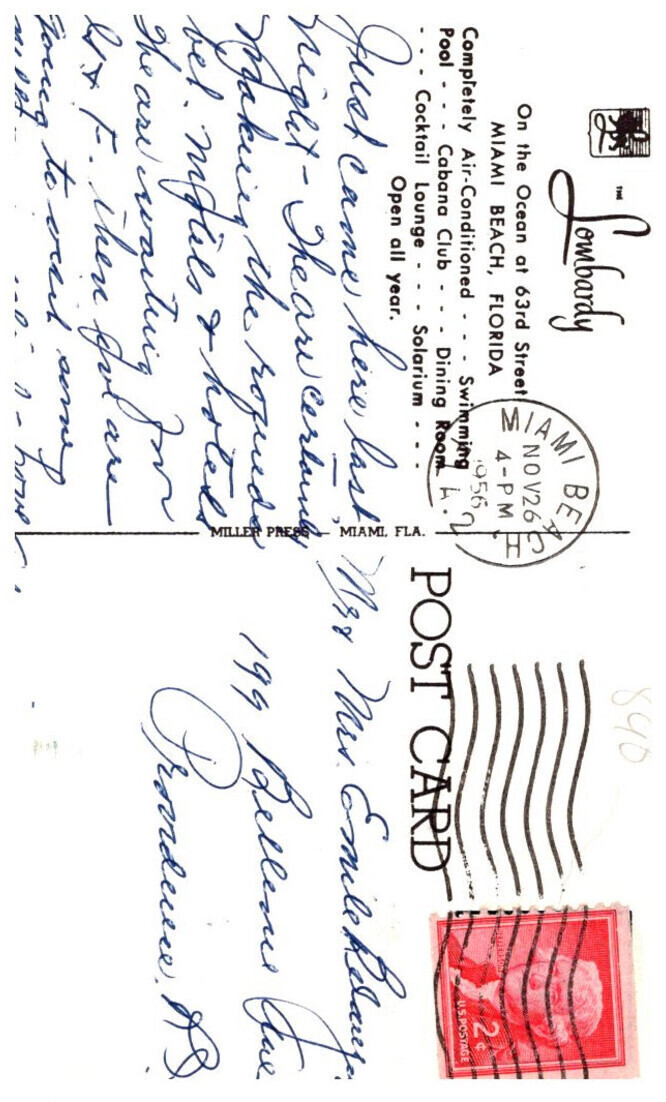 THE
Lombardy
On the Ocean at 63rd Street
MIAMI BEACH, FLORIDA
Completely Air-Conditioned - - - Swimming
Pool - - - Cabana Club - - - Dining Room
- - - Cocktail Lounge - - - Solarium - - -
Open all year.
Just came here last
night - certainly
making the rounds
bet. motels & hotels
waiting for
& F. then we are
going to
MIAMI BEACH,
NOV 26
4-PM
1956
MILLER PRESS — MIAMI, FLA.
POST CARD
Mr & Mrs. Emile
199 Bellevue Ave
Providence, RI
840
JEFFERSON
2¢
U.S. POSTAGE